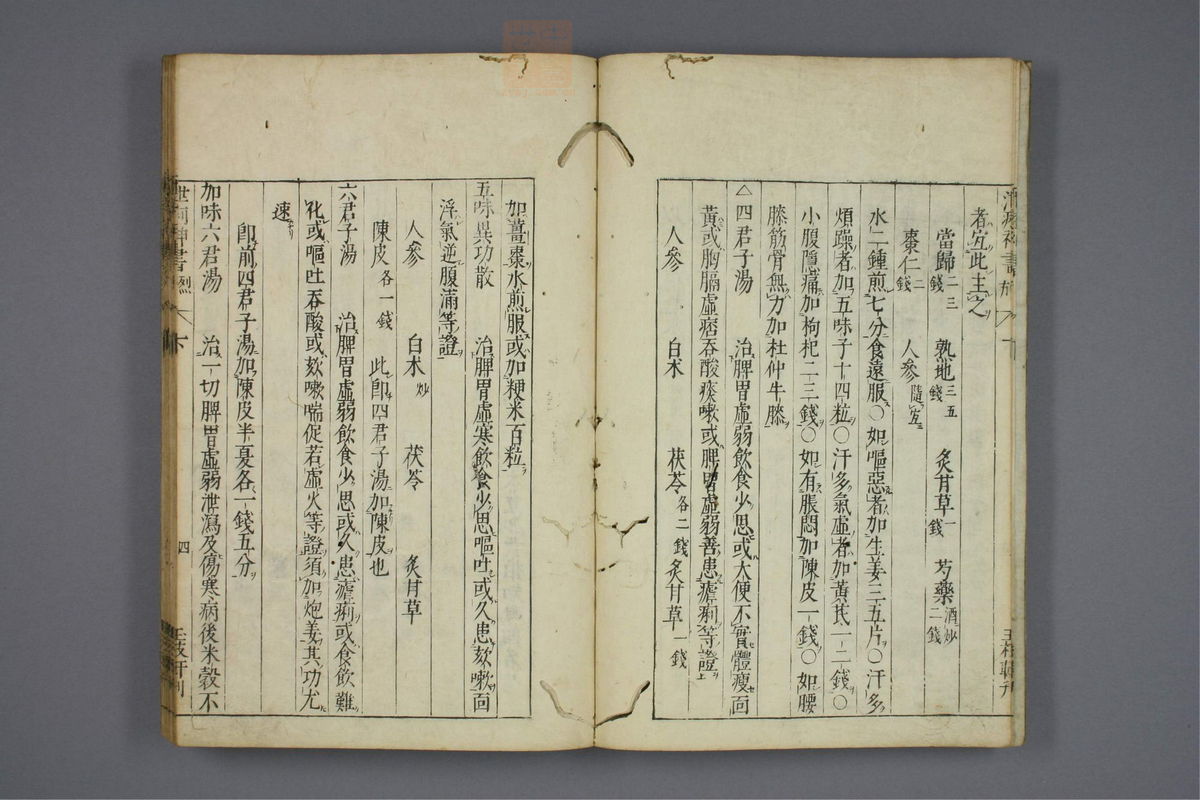 者宜此主之
當歸二三錢 熟地三五錢 炙甘草一錢 芍藥酒炒二錢
棗仁二錢 人參隨宜
水二鍾煎七分食遠服○如嘔惡者加生姜三五片○汗多
煩躁者加五味子十四粒○汗多氣虛者加黃芪一二錢○
小腹隱痛加枸杞二三錢○如有脹悶加陳皮一錢○如腰
膝筋骨無力加杜仲牛膝
△四君子湯 治脾胃虛弱飲食少思或大便不實體瘦面
黃或胸膈虛痞吞酸痰嗽或脾胃虛弱善患瘧痢等證
人參 白朮 茯苓各二錢 炙甘草一錢
加薑棗水煎服或加粳米百粒
五味異功散 治脾胃虛寒飲食少思嘔吐或久患欬嗽面
浮氣逆腹滿等證
人參 白朮炒 茯苓 炙甘草
陳皮各一錢 此卽四君子湯加陳皮也
六君子湯 治脾胃虛弱飲食少思或久患瘧痢或食飲難
化或嘔吐吞酸或欬嗽喘促若虛火等證須加炮姜其功尤
速
卽前四君子湯加陳皮半夏各一錢五分
加味六君湯 治一切脾胃虛弱泄瀉及傷寒病後米穀不
四